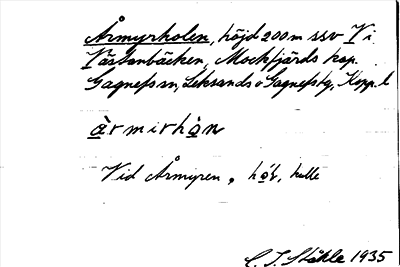 Årmyrholen, höjd 200 m ssv Vi
Västanbäcken, Mockfjärds kap.
Gagnefs sn, Leksands o Gagnefs tg, Kopp. l
àrmirhòn
Vid Årmyren, hòl, kulle
C. I. Ståhle 1935